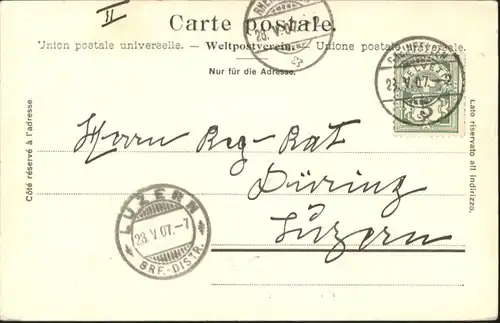 II
Carte postale.
Union postale universelle. — Weltpostverein. — Unione postale universale.
Nur für die Adresse.
23.V.07.
HELVETIA
23.V.07.–
Côté réservé à l'adresse.
Lato riservato all' indirizzo.
Herrn Reg-Rat
Düring
Luzern
LUZERN
23.V.07.–7
BRF.-DISTR.